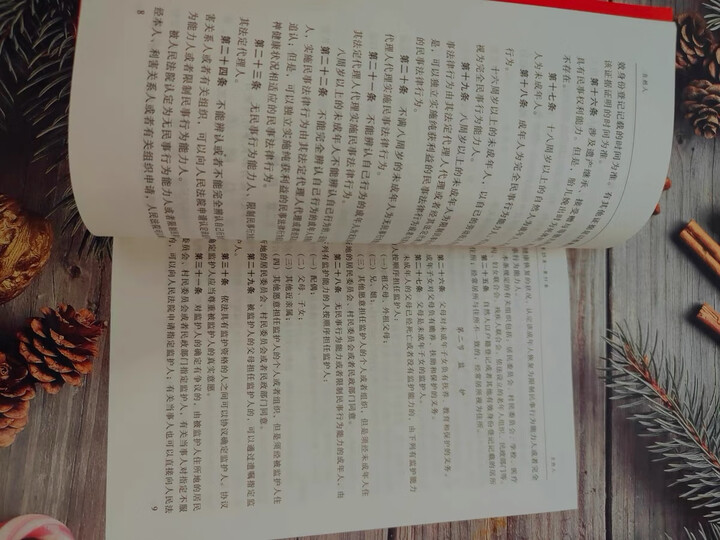 效身份登记记载的时间为准。有其他
该证据证明的时间为准。
第十六条 涉及遗产继承、接受赠与
具有民事权利能力。但是，胎儿娩出时
不存在。
第十七条 十八周岁以上的自然人为
人为未成年人。
第十八条 成年人为完全民事行为能力
行为。
十六周岁以上的未成年人，以自己
视为完全民事行为能力人。
第十九条 八周岁以上的未成年人为限制
事法律行为由其法定代理人代理或者经其
是，可以独立实施纯获利益的民事法律行为
的民事法律行为。
第二十条 不满八周岁的未成年人为无民
代理人代理实施民事法律行为。
第二十一条 不能辨认自己行为的成年人
其法定代理人代理实施民事法律行为。
八周岁以上的未成年人不能辨认自己行为的
第二十二条 不能完全辨认自己行为的成年
人，实施民事法律行为由其法定代理人代理或者
追认；但是，可以独立实施纯获利益的民事法律
神健康状况相适应的民事法律行为。
第二十三条 无民事行为能力人、限制民事行为
其法定代理人。
第二十四条 不能辨认或者不能完全辨认自己
害关系人或者有关组织，可以向人民法院申请认定
为能力人或者限制民事行为能力人。
被人民法院认定为无民事行为能力人或者限制
经本人、利害关系人或者有关组织申请，人民法院
8
第二十五条 自然人以户籍登记或者其他有效身份登记记载的居所
为住所；经常居所与住所不一致的，经常居所视为住所。
第二节 监 护
第二十六条 父母对未成年子女负有抚养、教育和保护的义务。
成年子女对父母负有赡养、扶助和保护的义务。
第二十七条 父母是未成年子女的监护人。
未成年人的父母已经死亡或者没有监护能力的，由下列有监护能力
人按顺序担任监护人：
（一）祖父母、外祖父母；
（二）兄、姐；
（三）其他愿意担任监护人的个人或者组织，但是须经未成年人住
地的居民委员会、村民委员会或者民政部门同意。
第二十八条 无民事行为能力或者限制民事行为能力的成年人，由
列有监护能力的人按顺序担任监护人：
（一）配偶；
（二）父母、子女；
（三）其他近亲属；
（四）其他愿意担任监护人的个人或者组织，但是须经被监护人住
地的居民委员会、村民委员会或者民政部门同意。
被监护人的父母担任监护人的，可以通过遗嘱指定监
人。
第三十条 依法具有监护资格的人之间可以协议确定监护人。协议
定监护人应当尊重被监护人的真实意愿。
第三十一条 对监护人的确定有争议的，由被监护人住所地的居民
委员会、村民委员会或者民政部门指定监护人，有关当事人对指定不服
，可以向人民法院申请指定监护人；有关当事人也可以直接向人民法
9